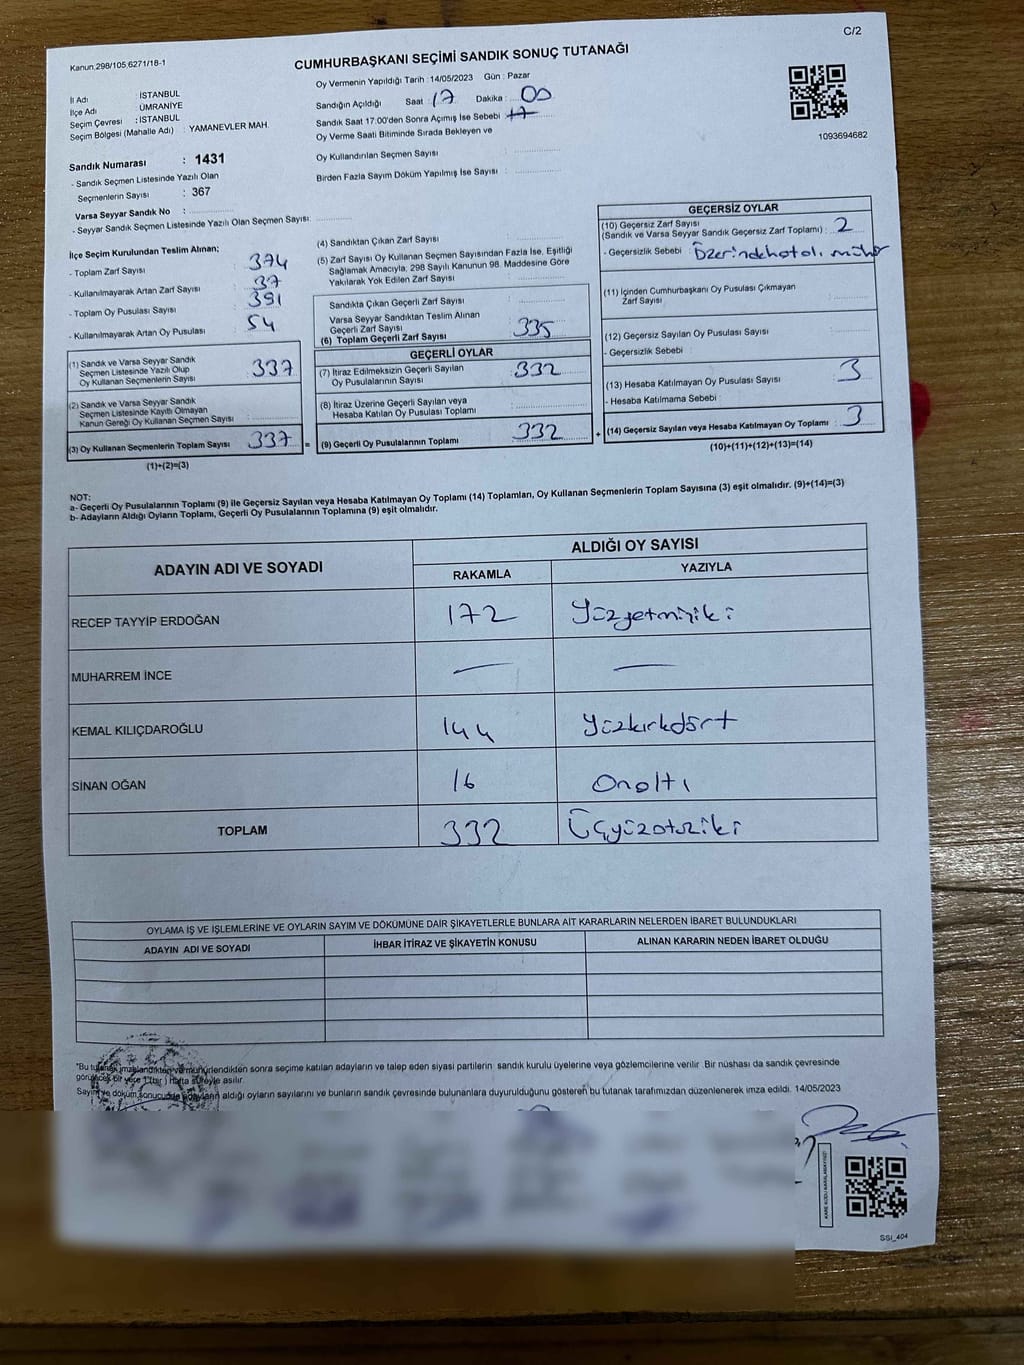 C/2
Kanun.298/105,6271/18-1
CUMHURBAŞKANI SEÇİMİ SANDIK SONUÇ TUTANAĞI
İl Adı : İSTANBUL
İlçe Adı : ÜMRANİYE
Seçim Çevresi : İSTANBUL
Seçim Bölgesi (Mahalle Adı) : YAMANEVLER MAH.
Sandık Numarası : 1431
- Sandık Seçmen Listesinde Yazılı Olan
Seçmenlerin Sayısı : 367
Varsa Seyyar Sandık No :
- Seyyar Sandık Seçmen Listesinde Yazılı Olan Seçmen Sayısı:
Oy Vermenin Yapıldığı Tarih : 14/05/2023 Gün : Pazar
Sandığın Açıldığı Saat : 17 Dakika : 00
Sandık Saat 17:00'den Sonra Açımış İse Sebebi 17
Oy Verme Saati Bitiminde Sırada Bekleyen ve
Oy Kullandırılan Seçmen Sayısı :
Birden Fazla Sayım Döküm Yapılmış İse Sayısı :
1093694682
İlçe Seçim Kurulundan Teslim Alınan;
- Toplam Zarf Sayısı : 374
- Kullanılmayarak Artan Zarf Sayısı : 37
- Toplam Oy Pusulası Sayısı : 391
- Kullanılmayarak Artan Oy Pusulası : 54
(1) Sandık ve Varsa Seyyar Sandık
Seçmen Listesinde Yazılı Olup
Oy Kullanan Seçmenlerin Sayısı : 337
(2) Sandık ve Varsa Seyyar Sandık
Seçmen Listesinde Kayıtlı Olmayan
Kanun Gereği Oy Kullanan Seçmen Sayısı :
(3) Oy Kullanan Seçmenlerin Toplam Sayısı : 337 =
(1)+(2)=(3)
(4) Sandıktan Çıkan Zarf Sayısı :
(5) Zarf Sayısı Oy Kullanan Seçmen Sayısından Fazla İse, Eşitliği
Sağlamak Amacıyla; 298 Sayılı Kanunun 98. Maddesine Göre
Yakılarak Yok Edilen Zarf Sayısı :
Sandıkta Çıkan Geçerli Zarf Sayısı :
Varsa Seyyar Sandıktan Teslim Alınan
Geçerli Zarf Sayısı :
(6) Toplam Geçerli Zarf Sayısı : 335
GEÇERLİ OYLAR
(7) İtiraz Edilmeksizin Geçerli Sayılan
Oy Pusulalarının Sayısı : 332
(8) İtiraz Üzerine Geçerli Sayılan veya
Hesaba Katılan Oy Pusulası Toplamı :
(9) Geçerli Oy Pusulalarının Toplamı : 332 +
GEÇERSİZ OYLAR
(10) Geçersiz Zarf Sayısı
(Sandık ve Varsa Seyyar Sandık Geçersiz Zarf Toplamı) : 2
- Geçersizlik Sebebi : Üzerinde hatalı mühür
(11) İçinden Cumhurbaşkanı Oy Pusulası Çıkmayan
Zarf Sayısı :
(12) Geçersiz Sayılan Oy Pusulası Sayısı :
- Geçersizlik Sebebi :
(13) Hesaba Katılmayan Oy Pusulası Sayısı : 3
- Hesaba Katılmama Sebebi :
(14) Geçersiz Sayılan veya Hesaba Katılmayan Oy Toplamı : 3
(10)+(11)+(12)+(13)=(14)
NOT:
a- Geçerli Oy Pusulalarının Toplamı (9) ile Geçersiz Sayılan veya Hesaba Katılmayan Oy Toplamı (14) Toplamları, Oy Kullanan Seçmenlerin Toplam Sayısına (3) eşit olmalıdır. (9)+(14)=(3)
b- Adayların Aldığı Oyların Toplamı, Geçerli Oy Pusulalarının Toplamına (9) eşit olmalıdır.
ADAYIN ADI VE SOYADI
ALDIĞI OY SAYISI
RAKAMLA YAZIYLA
RECEP TAYYİP ERDOĞAN 172 Yüzyetmişiki
MUHARREM İNCE — —
KEMAL KILIÇDAROĞLU 144 Yüzkırkdört
SİNAN OĞAN 16 Onaltı
TOPLAM 332 Üçyüzotuziki
OYLAMA İŞ VE İŞLEMLERİNE VE OYLARIN SAYIM VE DÖKÜMÜNE DAİR ŞİKAYETLERLE BUNLARA AİT KARARLARIN NELERDEN İBARET BULUNDUKLARI
ADAYIN ADI VE SOYADI İHBAR İTİRAZ VE ŞİKAYETİN KONUSU ALINAN KARARIN NEDEN İBARET OLDUĞU
*Bu tutanak imzalandıktan ve mühürlendikten sonra seçime katılan adayların ve talep eden siyasi partilerin sandık kurulu üyelerine veya gözlemcilerine verilir. Bir nüshası da sandık çevresinde
görülecek bir yere 1 (bir) hafta süreyle asılır.
Sayım ve döküm sonucunda adayların aldığı oyların sayılarını ve bunların sandık çevresinde bulunanlara duyurulduğunu gösteren bu tutanak tarafımızdan düzenlenerek imza edildi. 14/05/2023
KARE KODU KARALAMAYINIZ!
SSI_404